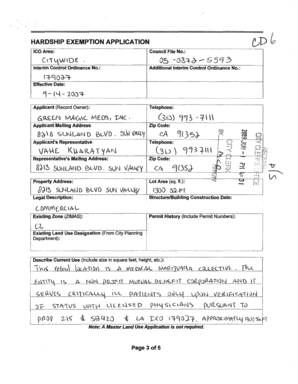 CD 6
HARDSHIP EXEMPTION APPLICATION
ICO Area: Council File No.:
CITYWIDE. 05-0872-5593
Interim Control Ordinance No.: Additional Interim Control Ordinance No.:
179027
Effective Date:
9-14-2007
Applicant (Record Owner): Telephone:
GREEN MAGIC MEDS, INC. (310) 993-7111
Applicant Mailing Address Zip Code:
8213 SUNLAND BLVD. SUN VALLEY CA 91352
Applicant's Representative Telephone:
VAHE KHARATYAN (310) 9937111
Representative's Mailing Address: Zip Code:
8213 SUNLAND BLVD. SUN VALLEY CA 91352
Property Address: Lot Area (sq. ft.):
8213 SUNLAND BLVD SUN VALLEY 1300 SQ.FT
Legal Description: Structure/Building Construction Date:
COMMERCIAL
Existing Zone (ZIMAS): Permit History (Include Permit Numbers):
C2
Existing Land Use Designation (From City Planning
Department):
CITY CLERK'S OFFICE
2009 JUN -1 PM
CITY CLERK
BY
DEPUTY
Describe Current Use (Include size in square feet, height, etc.):
THIS retail location IS A MEDICAL MARIJUANA COLLECTIVE. THE
ENTITY IS A NON PROFIT MUTUAL BENEFIT CORPORATION AND IT
SERVES CRITICALLY ILL PATIENTS ONLY UPON VERIFICATION
OF STATUS WITH LICENSED PHYSICIANS PURSUANT TO
PROP 215 & SB420 & LA ICO 179027. APPROXIMATELY 1300 SQ.FT
Note: A Master Land Use Application is not required.
Page 3 of 5